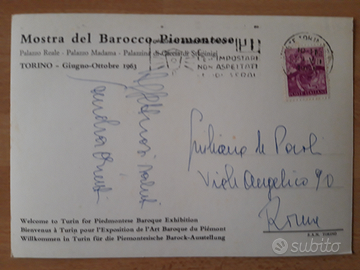 Mostra del Barocco Piemontese
Palazzo Reale - Palazzo Madama - Palazzina di Caccia di Stupinigi
TORINO - Giugno-Ottobre 1963
IMPOSTATE
NON ASPETTATE
Affettuosi saluti
Giuliana de Paoli
Viale Angelico 90
Roma
Welcome to Turin for Piedmontese Baroque Exhibition
Bienvenus à Turin pour l'Exposition de l'Art Baroque du Piémont
Willkommen in Turin für die Piemontesische Barock-Ausstellung
subito